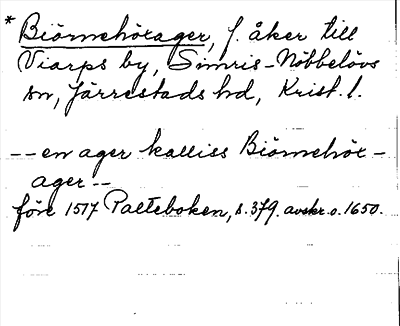 * Biörnehörager, f. åker till
Viarps by, Simris-Nöbbelövs
sn, Järrestads hd, Krist. l.
-- en ager kalliss Biörnehör-
ager --
före 1517 Palteboken, s. 379. avskr. o. 1650.